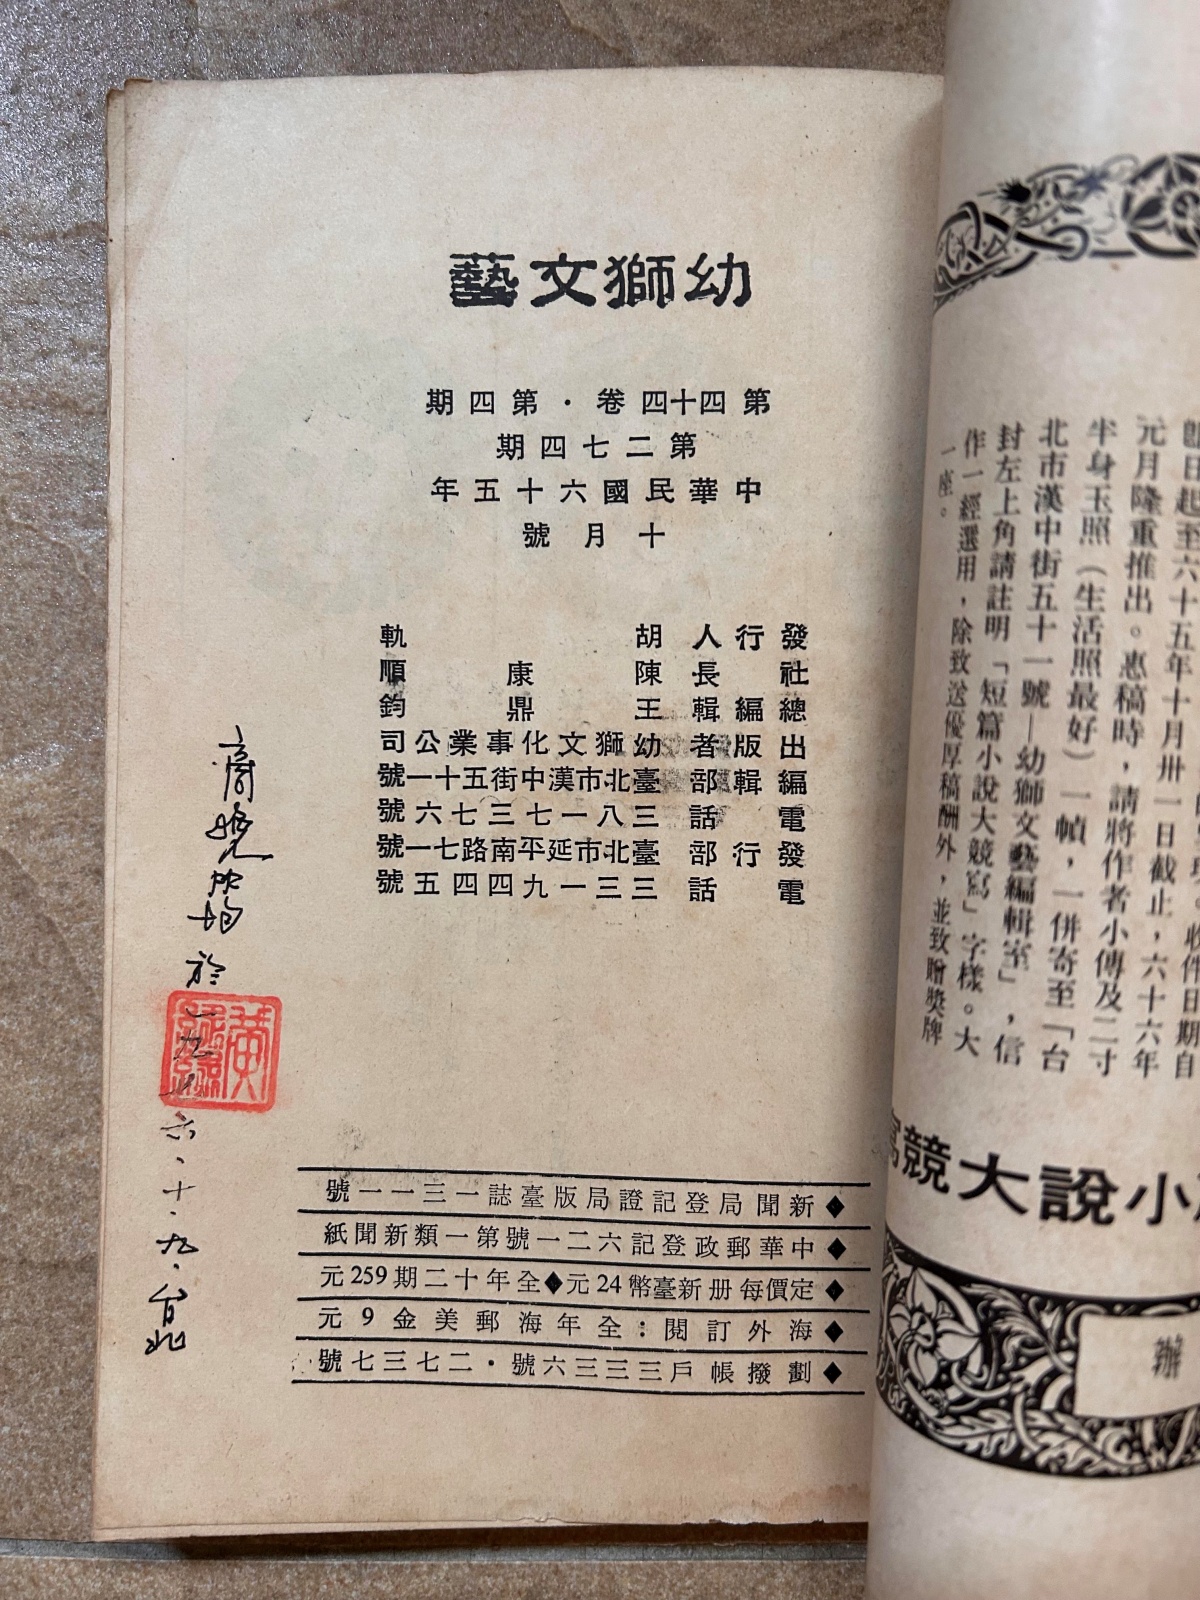 幼獅文藝
第四十四卷．第四期
第二七四期
中華民國六十五年
十月號
發行人 胡軌
社長 陳康順
總編輯 王鼎鈞
出版者 幼獅文化事業公司
編輯部 臺北市漢中街五十一號
電話 三八一七三七六號
發行部 臺北市延平南路七一號
電話 三三一九四四五號
◆新聞局登記證局版臺誌一三一一號
◆中華郵政登記六二一號第一類新聞紙
◆定價每册新臺幣24元◆全年十二期259元
◆海外訂閱：全年海郵美金9元
◆劃撥帳戶三三三六號．二七三七號
於一九七六、十、九、台北
黃
收件日期自
日起至六十五年十月卅一日截止，六十六年
元月隆重推出。惠稿時，請將作者小傳及二寸
半身玉照（生活照最好）一幀，一併寄至「台
北市漢中街五十一號—幼獅文藝編輯室」，信
封左上角請註明「短篇小說大競寫」字樣。大
作一經選用，除致送優厚稿酬外，並致贈獎牌
一座。
小說大競寫
辦